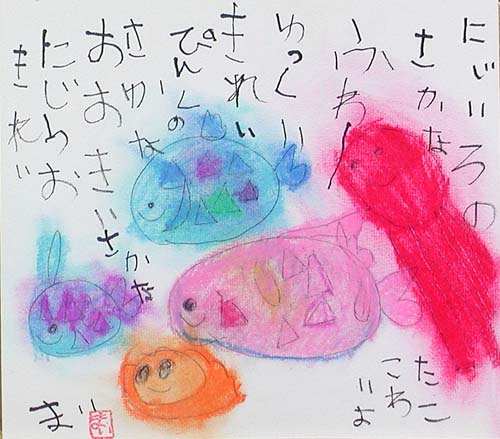 にじいろの
さかな
ふわ〜
ゆっくり
きれい
ぴんくの
さかな
おおきいさかな
にじいお
きれい
たこ
こわいよ